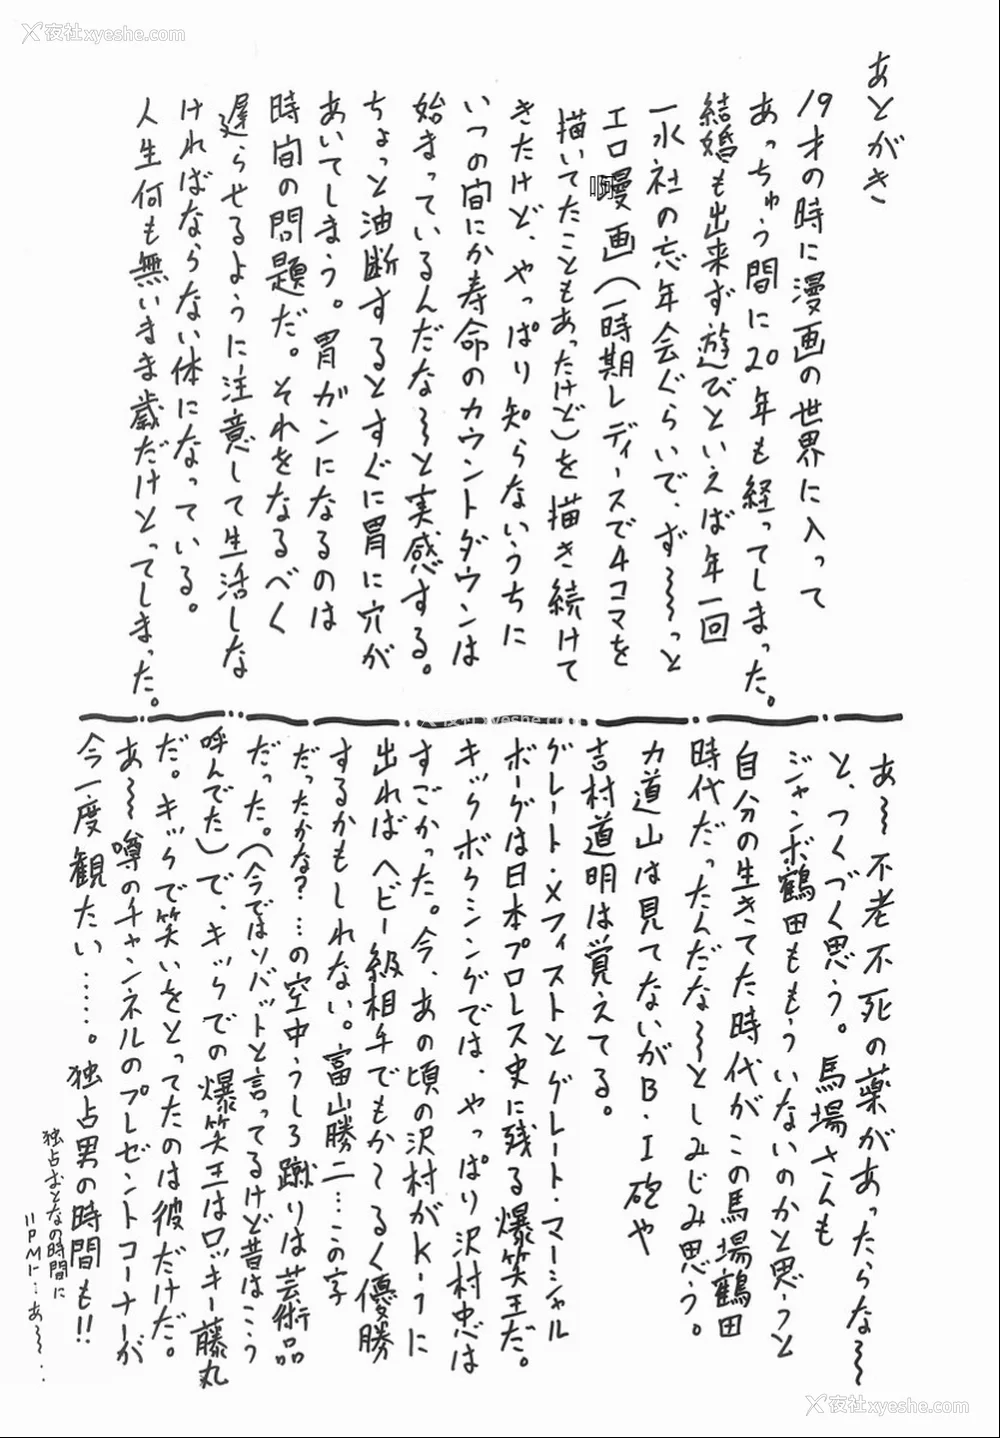 夜社xyeshe.com
あとがき
19才の時に漫画の世界に入って
あっちゅう間に20年も経ってしまった。
結婚も出来ず遊びといえば年一回
一水社の忘年会ぐらいで、ず〜〜っと
エロ漫画(一時期レディースで4コマを
啊
描いてたこともあったけど)を描き続けて
きたけど、やっぱり知らないうちに
いつの間にか寿命のカウントダウンは
始まっているんだな〜と実感する。
ちょっと油断するとすぐに胃に穴が
あいてしまう。胃ガンになるのは
時間の問題だ。それをなるべく
遅らせるように注意して生活しな
ければならない体になっている。
人生何も無いまま歳だけとってしまった。
夜社xyeshe.com
あ〜不老不死の薬があったらな〜
と、つくづく思う。馬場さんも
ジャンボ鶴田ももういないのかと思うと
自分の生きてた時代がこの馬場鶴田
時代だったんだな〜としみじみ思う。
力道山は見てないがB・I砲や
吉村道明は覚えてる。
グレート・メフィストとグレート・マーシャル
ボーグは日本プロレス史に残る爆笑王だ。
キックボクシングでは、やっぱり沢村忠は
すごかった。今、あの頃の沢村がK-1に
出ればヘビー級相手でもかてるく優勝
するかもしれない。富山勝二…この字
だったかな?…の空中うしろ蹴りは芸術品
だった。(今ではソバットと言ってるけど昔はこう
呼んでた)で、キックでの爆笑王はロッキー藤丸
だ。キックで笑いをとってたのは彼だけだ。
あ〜噂のチャンネルのプレゼントコーナーが
今一度観たい……。独占男の時間も!!
独占おとなの時間に
11PMに…あ〜…
夜社xyeshe.com